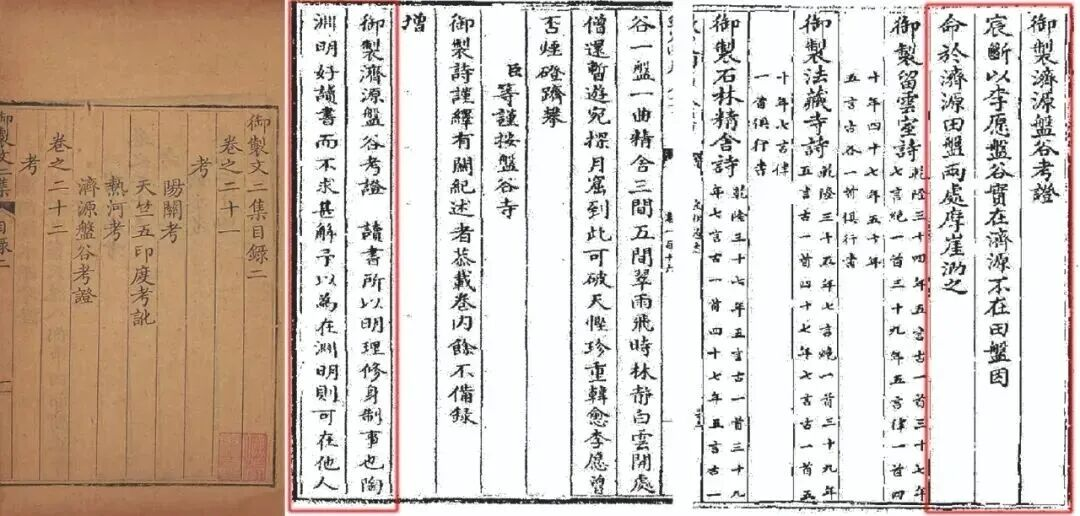 御製文二集目錄二
卷之二十一
考
陽關考
天竺五印度考訛
熱河考
濟源盤谷考證
卷之二十二
考
御製文二集
目錄二
谷一盤一曲精舍三間五間翠雨飛時林靜白雲開處
僧還暫遊宛探月窟到此可破天慳珍重韓愈李愿曾
否煙磴躋攀
臣等謹按盤谷寺
御製詩謹繹有關紀述者恭載卷內餘不備錄
增
御製濟源盤谷考證 讀書所以明理修身制事也陶
淵明好讀書而不求甚解予以為在淵明則可在他人
御製濟源盤谷考證
宸斷以李愿盤谷實在濟源不在田盤因
命於濟源田盤兩處摩崖泐之
御製留雲室詩 乾隆三十四年五言古一首三十七年
七言絕一首三十九年五言律一首四
十年四十七年五十年
五言古各一首俱行書
御製法藏寺詩 乾隆三十五年七言絕一首三十九年
五言古一首四十七年七言古一首五
十年七言律
一首俱行書
御製石林精舍詩 乾隆三十七年五言古一首三十九
年七言古一首四十七年五言古一